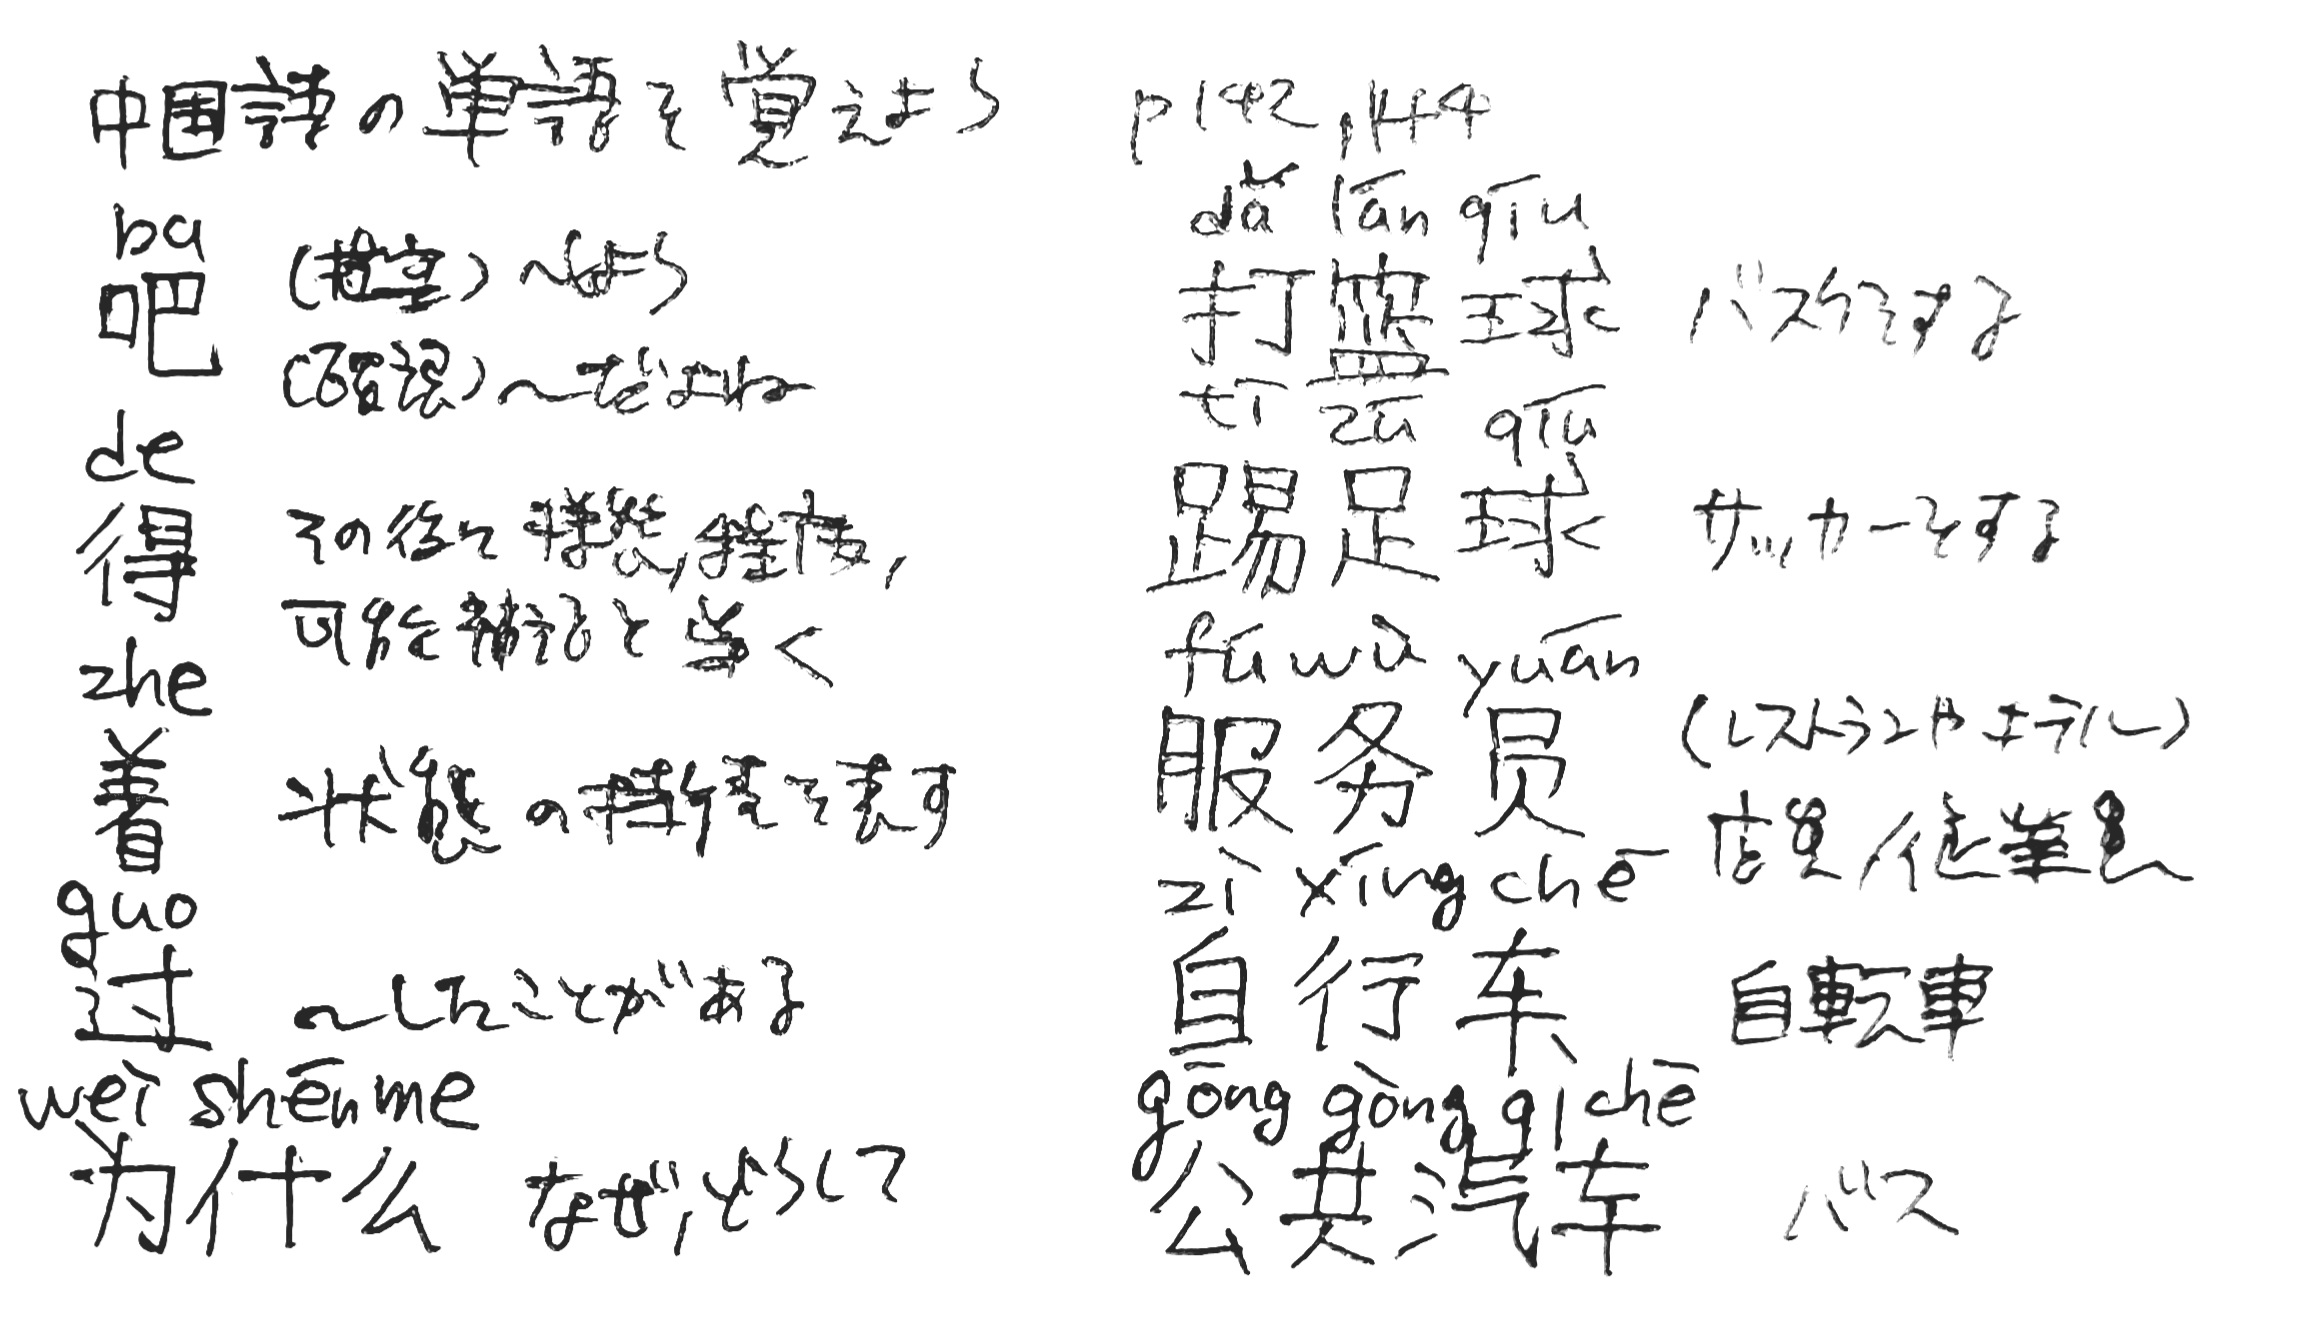 中国語の単語を覚えよう
ba
吧 (推量) 〜しよう
(確認) 〜だよね
de
得 その後に様態,程度,
可能補語を書く
zhe
着 状態の持続を表す
guo
过 〜したことがある
wèi shēn me
为什么 なぜ,どうして
p142,144
dǎ lán qiú
打篮球 バスケをする
tī zú qiú
踢足球 サッカーをする
fú wù yuán
服务员 (レストランやホテル)
店員/従業員
zì xíng chē
自行车 自転車
gōng gòng qì chē
公共汽车 バス